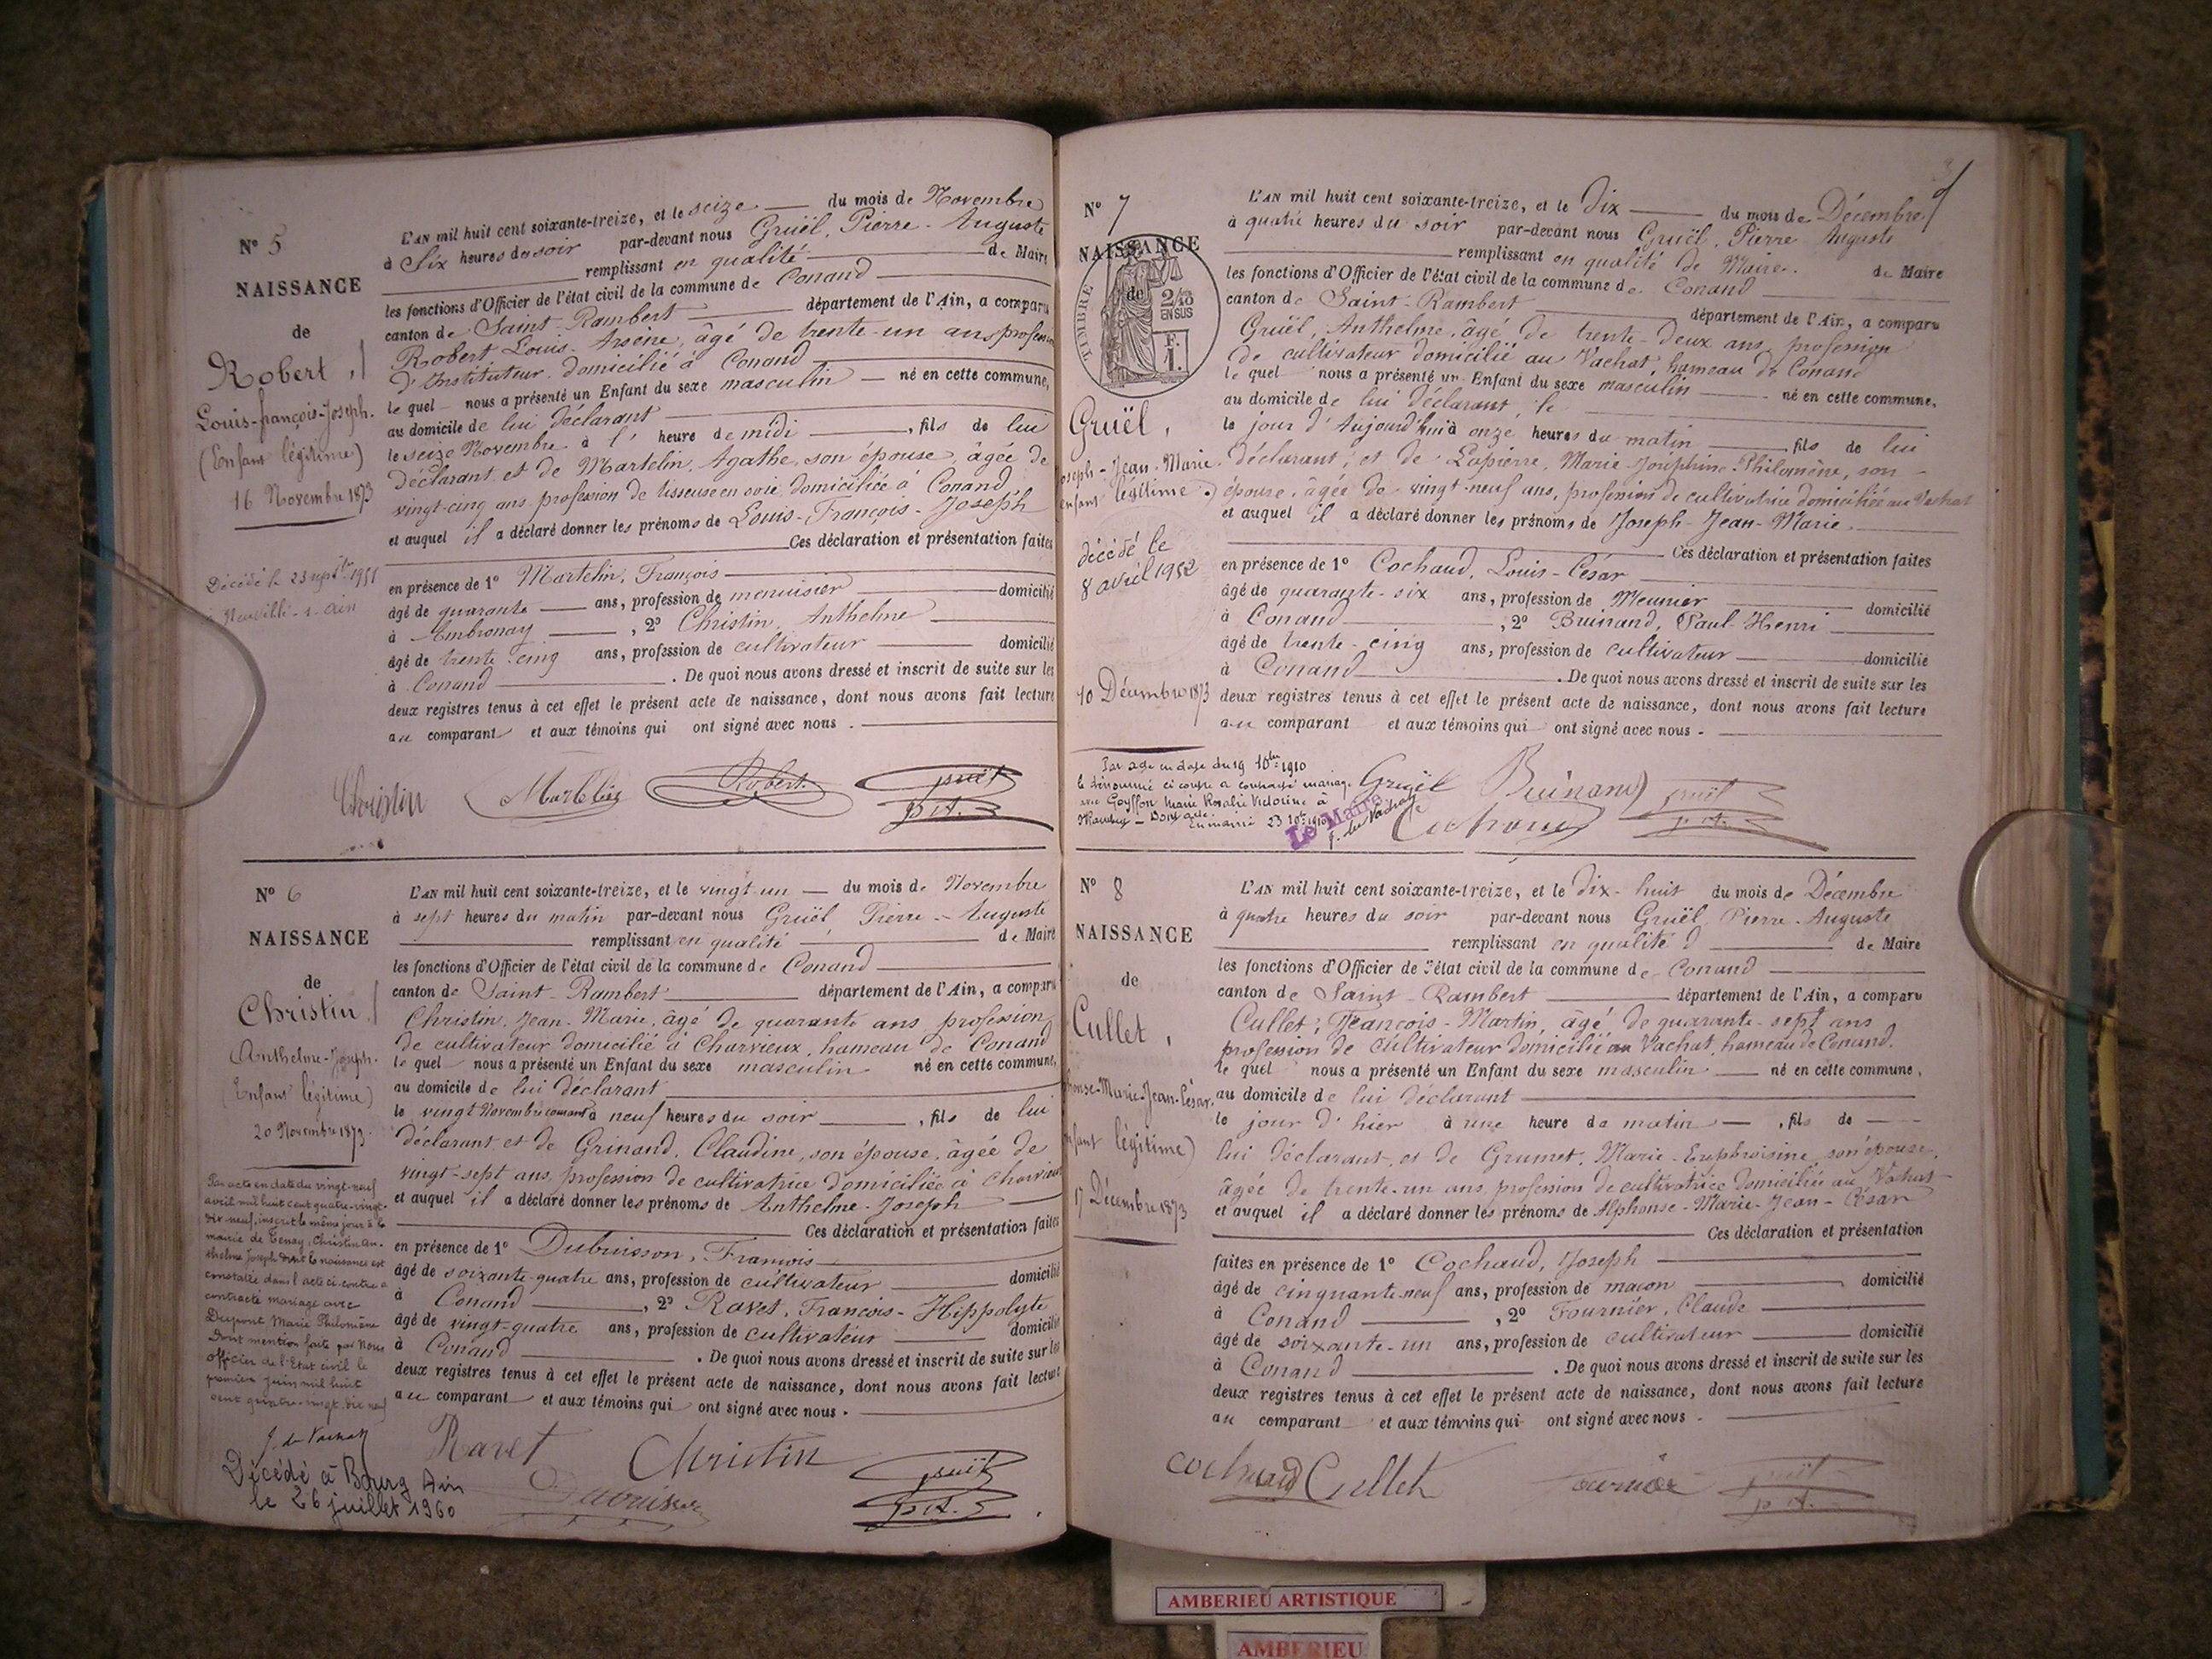 N° 5
NAISSANCE
de
Robert,
Louis-françois-Joseph.
(Enfant légitime)
16 Novembre 1873
Décédé le 23 septbre 1951
à Neuville-s-Ain
L'AN mil huit cent soixante-treize, et le seize du mois de Novembre
à Six heures du soir par-devant nous Gruël, Pierre-Auguste
remplissant en qualité de Maire
les fonctions d'Officier de l'état civil de la commune de Conand
canton de Saint-Rambert département de l'Ain, a comparu
Robert Louis-Arsène, âgé de trente-un ans profession
d'Instituteur domicilié à Conand
le quel nous a présenté un Enfant du sexe masculin né en cette commune,
au domicile de lui déclarant
le seize Novembre à l' heure de midi, fils de lui
déclarant et de Martelin, Agathe, son épouse, âgée de
vingt-cinq ans profession de tisseuse en soie domiciliée à Conand
et auquel il a déclaré donner les prénoms de Louis-François-Joseph
Ces déclaration et présentation faites
en présence de 1° Martelin, François
âgé de quarante ans, profession de menuisier domicilié
à Ambronay, 2° Christin, Anthelme
âgé de trente-cinq ans, profession de cultivateur domicilié
à Conand. De quoi nous avons dressé et inscrit de suite sur les
deux registres tenus à cet effet le présent acte de naissance, dont nous avons fait lecture
au comparant et aux témoins qui ont signé avec nous.
Christin Martelin Robert Gruël
N° 6
NAISSANCE
de
Christin,
Anthelme-Joseph.
(Enfant légitime)
20 Novembre 1873.
Par acte en date du vingt-neuf
avril mil huit cent quatre-vingt-
dix-neuf, inscrit le même jour à la
mairie de Tenay, Christin An-
thelme Joseph dont la naissance est
constatée dans l'acte ci-contre a
contracté mariage avec
Dupont Marie Philomène
Dont mention faite par Nous
officier de l'Etat civil le
premier Juin mil huit
cent quatre-vingt-dix neuf
Décédé à Bourg Ain
le 26 juillet 1960
L'AN mil huit cent soixante-treize, et le vingt-un du mois de Novembre
à sept heures du matin par-devant nous Gruël Pierre-Auguste
remplissant en qualité de Maire
les fonctions d'Officier de l'état civil de la commune de Conand
canton de Saint-Rambert département de l'Ain, a comparu
Christin, Jean-Marie, âgé de quarante ans profession
de cultivateur domicilié à Charvieux, hameau de Conand
le quel nous a présenté un Enfant du sexe masculin né en cette commune,
au domicile de lui déclarant
le vingt Novembre courant à neuf heures du soir, fils de lui
déclarant et de Grinand, Claudine, son épouse, âgée de
vingt-sept ans, profession de cultivatrice domiciliée à Charvieux
et auquel il a déclaré donner les prénoms de Anthelme-Joseph
Ces déclaration et présentation faites
en présence de 1° Dubuisson, François
âgé de soixante-quatre ans, profession de cultivateur domicilié
à Conand, 2° Ravet, François-Hippolyte
âgé de vingt-quatre ans, profession de cultivateur domicilié
à Conand. De quoi nous avons dressé et inscrit de suite sur les
deux registres tenus à cet effet le présent acte de naissance, dont nous avons fait lecture
au comparant et aux témoins qui ont signé avec nous.
Ravet Christin
Dubuisson Gruël
N° 7
NAISSANCE
de
TIMBRE
2/10
EN SUS
F.
1.
Gruël,
Joseph-Jean-Marie
enfant légitime.)
décédé le
8 avril 1952
10 Décembre 1873
Par acte en date du 19 10bre 1910
le dénommé ci contre a contracté mariage
avec Goyffon Marie Rosalie Victorine à
Dont acte.
En mairie 23 10bre 1910
Le Maire
L'AN mil huit cent soixante-treize, et le Dix du mois de Décembre
à quatre heures du soir par-devant nous Gruël, Pierre Auguste
remplissant en qualité de Maire. de Maire
les fonctions d'Officier de l'état civil de la commune de Conand
canton de Saint-Rambert département de l'Ain, a comparu
Gruël, Anthelme, âgé de trente-deux ans profession
de cultivateur domicilié au Vachat, hameau de Conand
le quel nous a présenté un Enfant du sexe masculin né en cette commune,
au domicile de lui déclarant, le
le jour d'Aujourd'hui à onze heures du matin fils de lui
déclarant, et de Lapierre, Marie-Joséphine-Philomène, son
épouse, âgée de vingt-neuf ans, profession de cultivatrice domiciliée au Vachat
et auquel il a déclaré donner les prénoms de Joseph-Jean-Marie.
Ces déclaration et présentation faites
en présence de 1° Cochaud, Louis-César
âgé de quarante-six ans, profession de Meunier domicilié
à Conand, 2° Buinand, Paul-Henri
âgé de trente-cinq ans, profession de cultivateur domicilié
à Conand. De quoi nous avons dressé et inscrit de suite sur les
deux registres tenus à cet effet le présent acte de naissance, dont nous avons fait lecture
au comparant et aux témoins qui ont signé avec nous.
Gruël Buinand Gruël
Cochaud
N° 8
NAISSANCE
de
Cullet,
Marie-Jean-César.
légitime)
17 Décembre 1873
L'AN mil huit cent soixante-treize, et le Dix-huit du mois de Décembre
à quatre heures du soir par-devant nous Gruël, Pierre-Auguste
remplissant en qualité d de Maire
les fonctions d'Officier de l'état civil de la commune de Conand
canton de Saint-Rambert département de l'Ain, a comparu
Cullet, François-Martin, âgé de quarante-sept ans
profession de cultivateur domicilié au Vachat, hameau de Conand.
le quel nous a présenté un Enfant du sexe masculin né en cette commune,
au domicile de lui déclarant
le jour d'hier à une heure du matin, fils de
lui déclarant, et de Grumet, Marie-Euphroisine, son épouse,
âgée de trente-un ans, profession de cultivatrice domiciliée au Vachat
et auquel il a déclaré donner les prénoms de Alphonse-Marie-Jean-César
Ces déclaration et présentation
faites en présence de 1° Cochaud, Joseph
âgé de cinquante-neuf ans, profession de maçon domicilié
à Conand, 2° Fournier, Claude
âgé de soixante-un ans, profession de cultivateur domicilié
à Conand. De quoi nous avons dressé et inscrit de suite sur les
deux registres tenus à cet effet le présent acte de naissance, dont nous avons fait lecture
au comparant et aux témoins qui ont signé avec nous.
Cochaud Cullet Fournier Gruël
AMBERIEU ARTISTIQUE
AMBERIEU